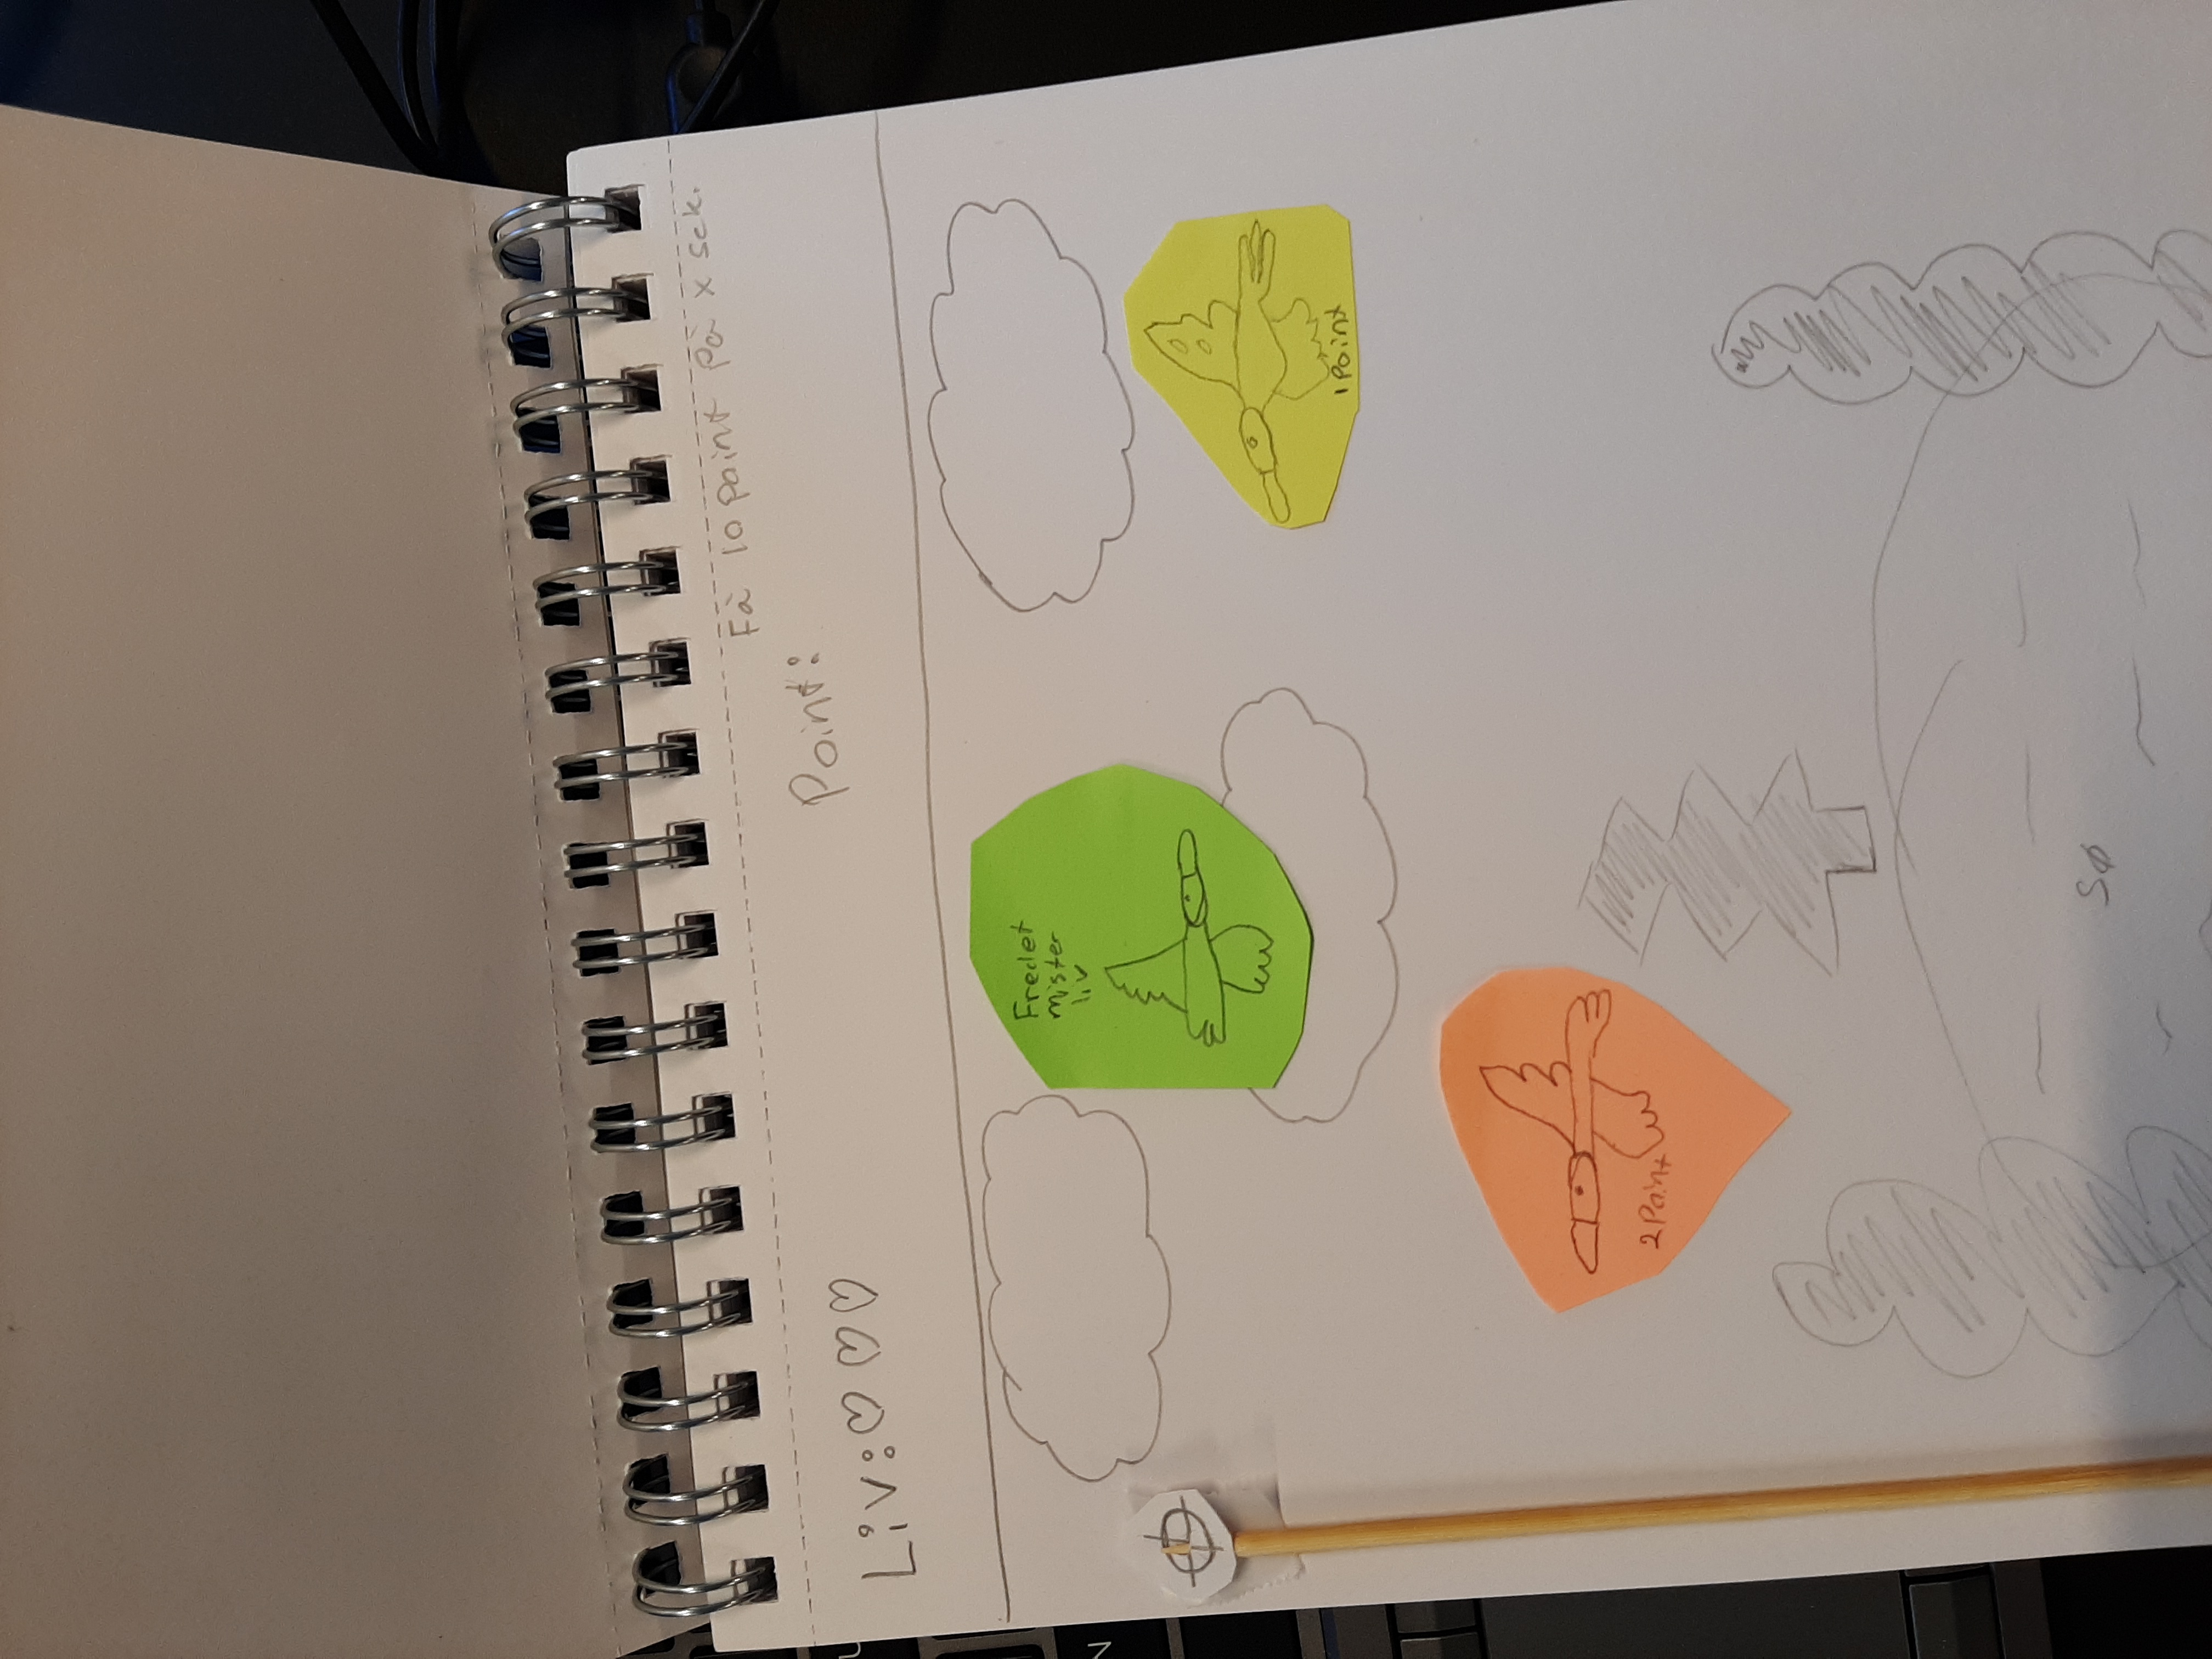 Få 10 point på x sek.
Liv:♡ ♡ ♡
Point:
Fredet
mister
liv
1 Point
2 Point
SØ